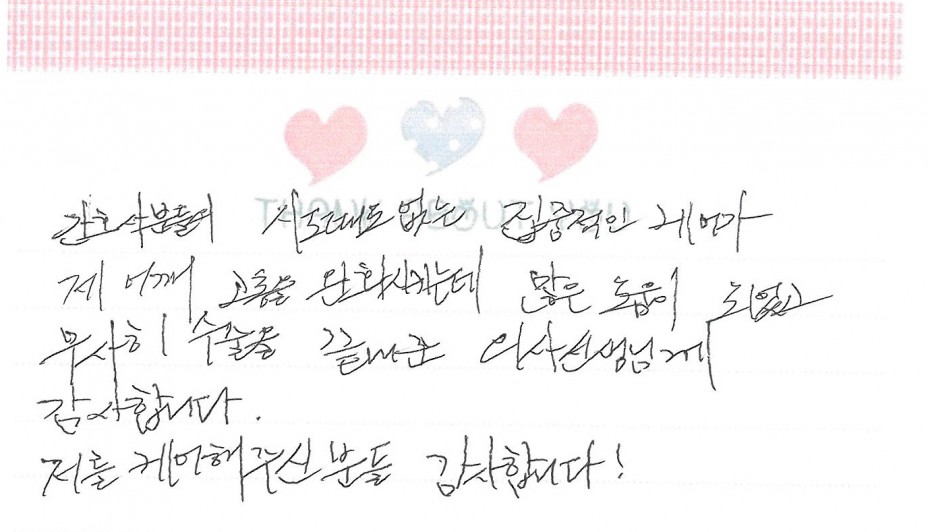 THANK ABOUT YOU
간호사분들의 시도때도없는 집중적인 케어가
제 어깨 고통을 완화시키는데 많은 도움이 되었고
무사히 수술을 끝내준 의사선생님께
감사합니다.
저를 케어해주신분들 감사합니다!